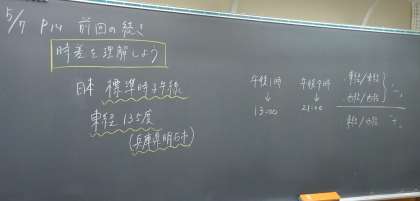 5/7 P14 前回の続き
時差を理解しよう
日本 標準時子午線
東経 135度
(兵庫県明石市)
午後1時 午後9時
↓ ↓
13:00 21:00
東経/東経
西経/西経
東経/西経